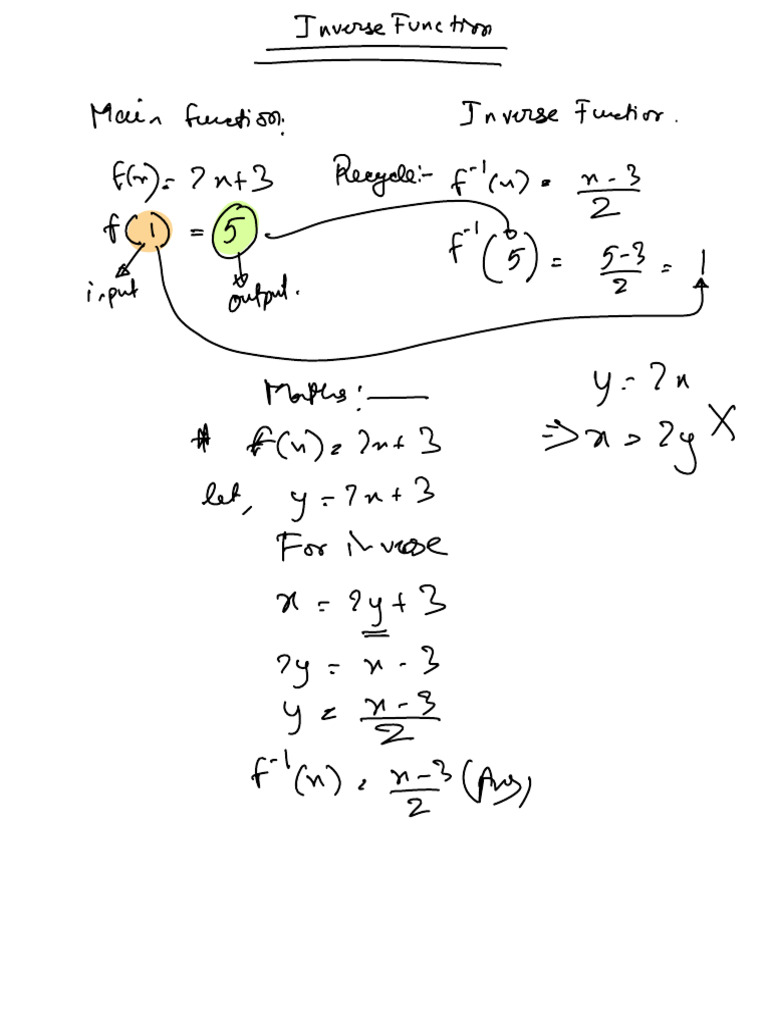 Inverse Function
Main function: Inverse Function.
f(x) = 2x+3 Recycle:- f⁻¹(x) = (x-3)/2
f(1) = 5 f⁻¹(5) = (5-3)/2 = 1
input output.
Maths:—
y = 2x
# f(x) = 2x+3 ⇒ x = 2y ×
let, y = 2x+3
For inverse
x = 2y+3
2y = x-3
y = (x-3)/2
f⁻¹(x) = (x-3)/2 (Ans)